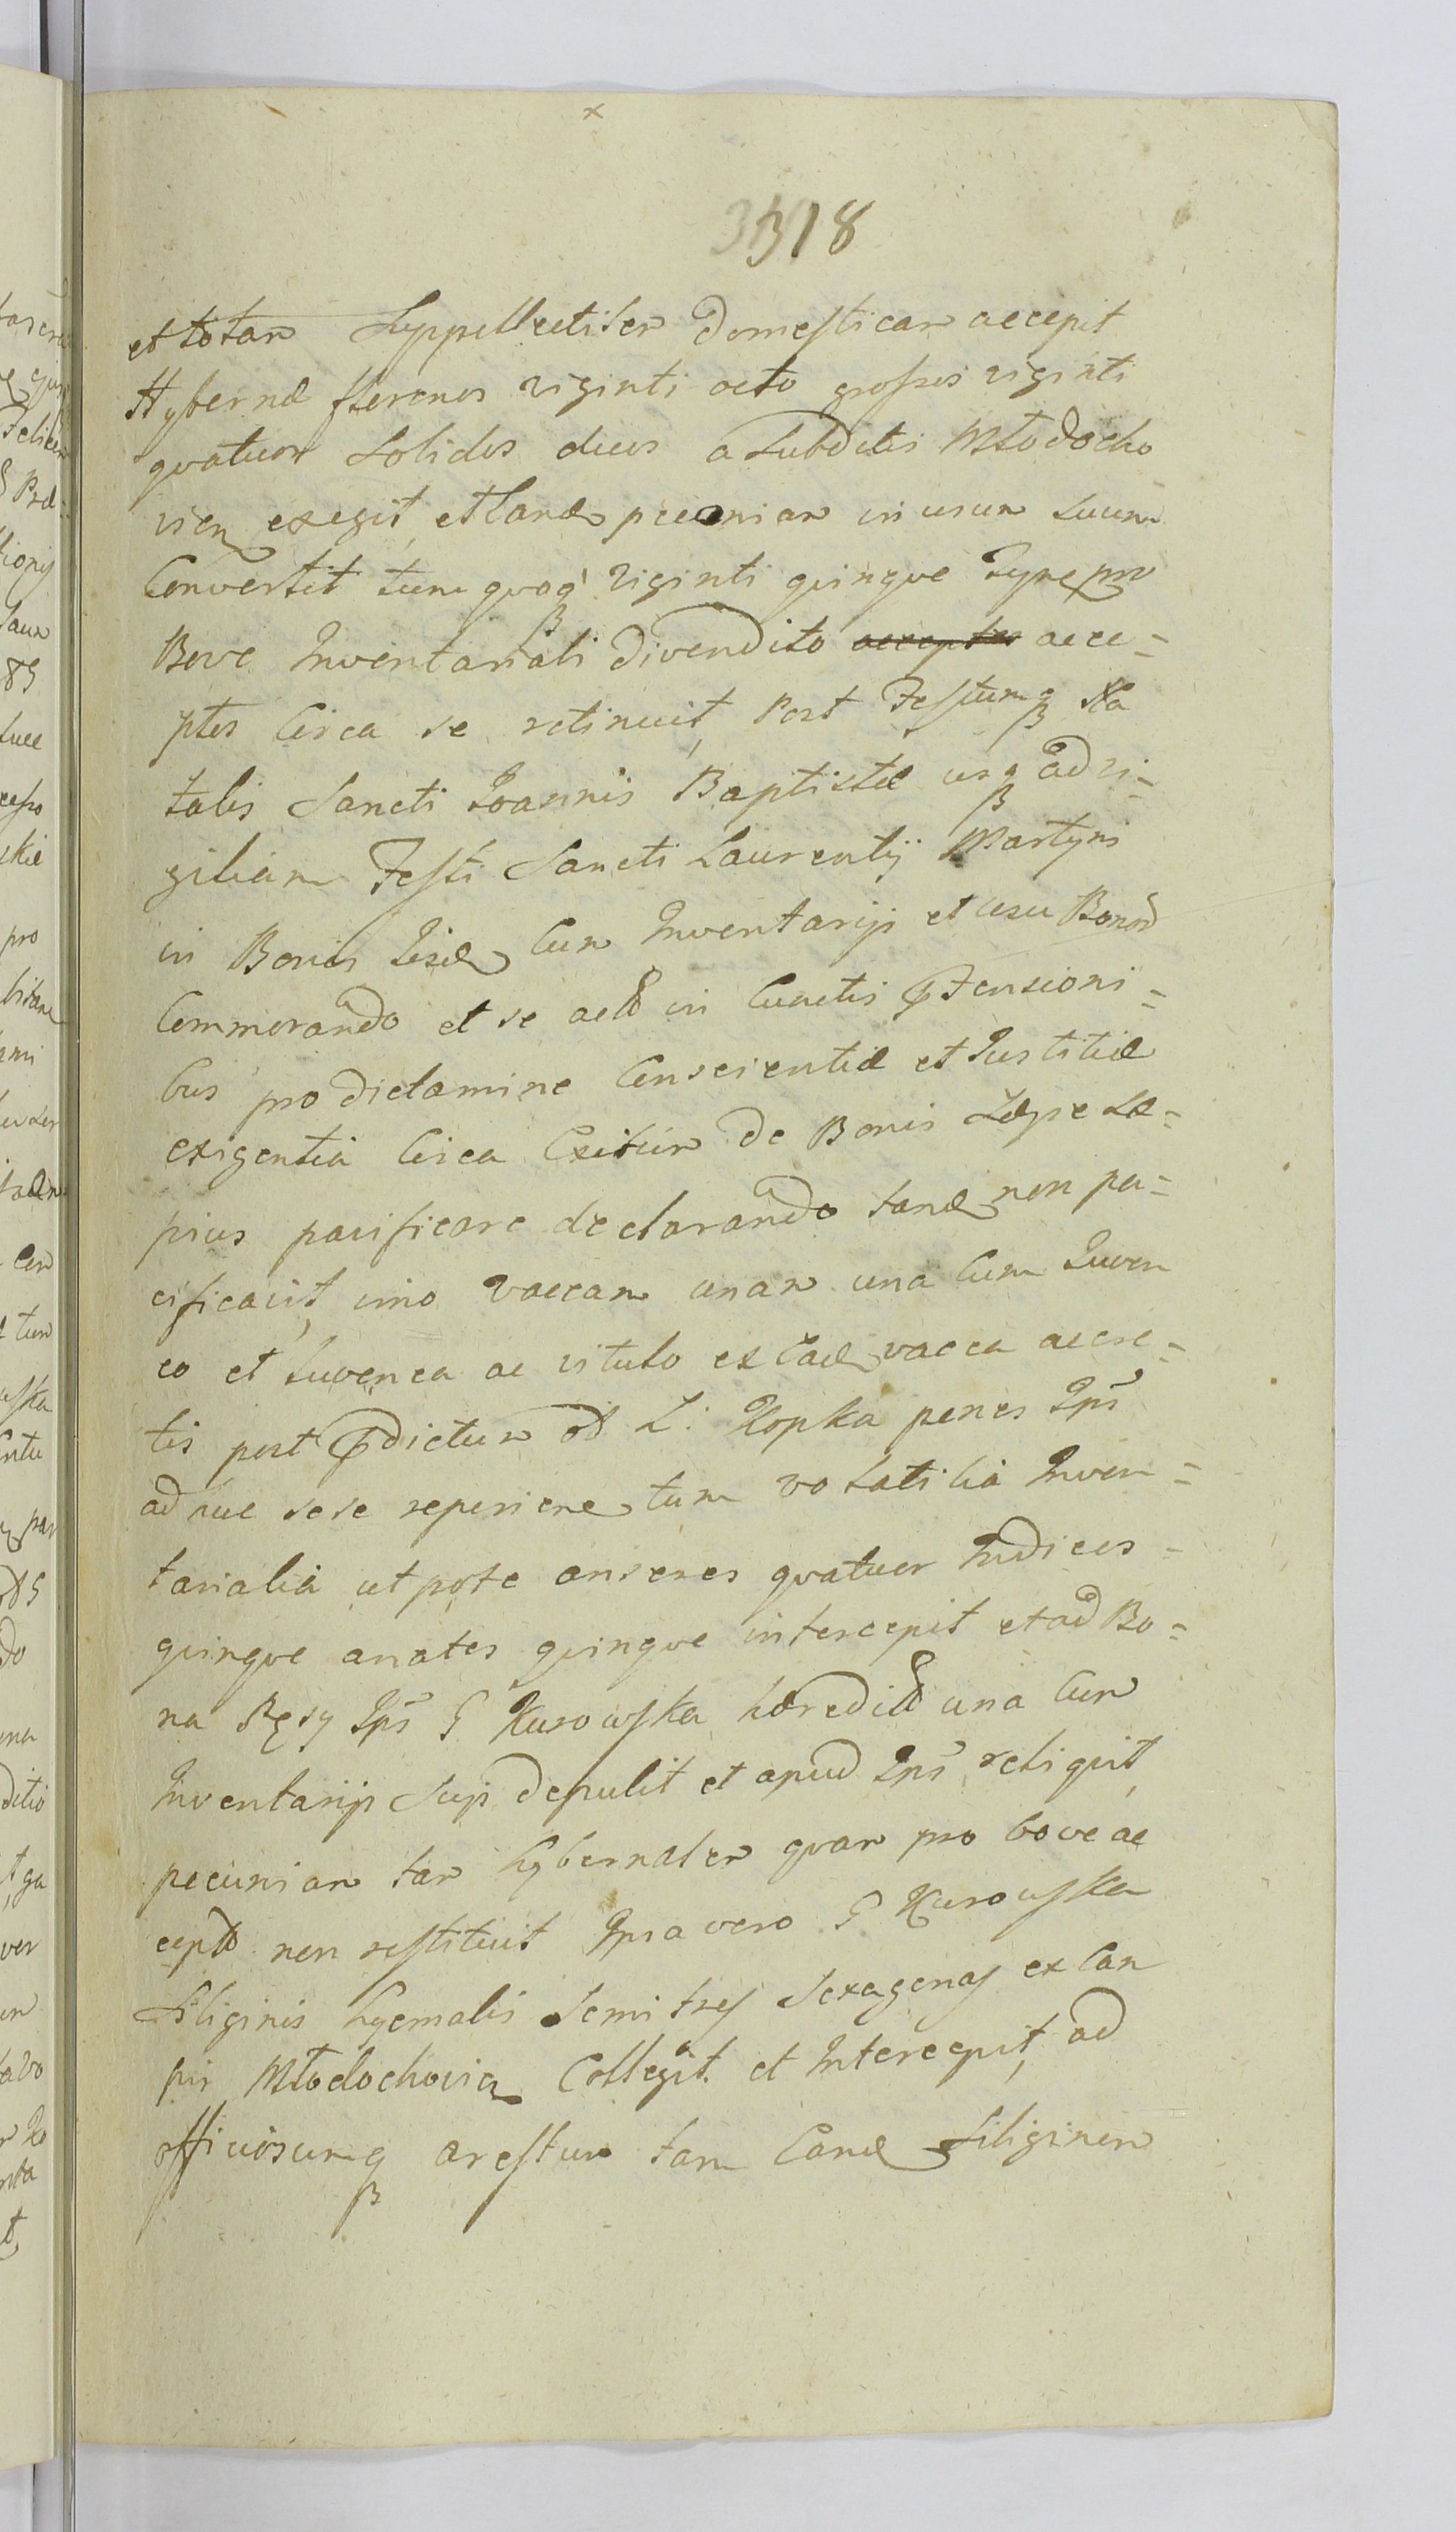 318
et totam Suppellectilem domesticam accepit
Hybernæ florenos viginti octo grossos viginti
qvatuor solidos duos a Subditis Młodocho
vien exegit, et eand pecuniam in usum suum
Convertit tum qvoq viginti qvinqve Tynf pro
Bove Inventariali divendito acceptos acce=
ptos Circa se retinuit, Post Festumq Na
talis Sancti Joannis Baptistæ usq ad vi=
giliam Festi Sancti Laurentij Martyris
in Bonis iisd Cum Inventarijs et usu Bonor
Commorando et se act in Cunctis prtensioni=
bus pro dictamine Conscientiæ et Justitiæ
exigentia Circa Exitum de Bonis sæpe sæ=
pius pacificare declarando tand non pa=
cificavit, imo vaccam unam una Cum Juven
co et Juvenca ac vitulo ex ead vacca accre=
tis post prdictum olt L: Kopka penes Ips
adhuc sese reperiene tum volatilia Inven=
tarialia utpote anseres qvatuor Indices=
qvinqve anates qvinqve intercepit et ad Bo=
na Ręsy Ips G Kurowska hæredit una Cum
Inventarijs suis depulit et apud Ips reliqvit,
pecuniam tam hybernalem qvam pro bove ac
cept non restituit Ipsa vero G Kurowska
Siliginis hyemalis semi tres Sexagenas ex Cam
pis Młodochovien Collegit et Intercepit, ad
officiosumq arestum tam eand siliginem